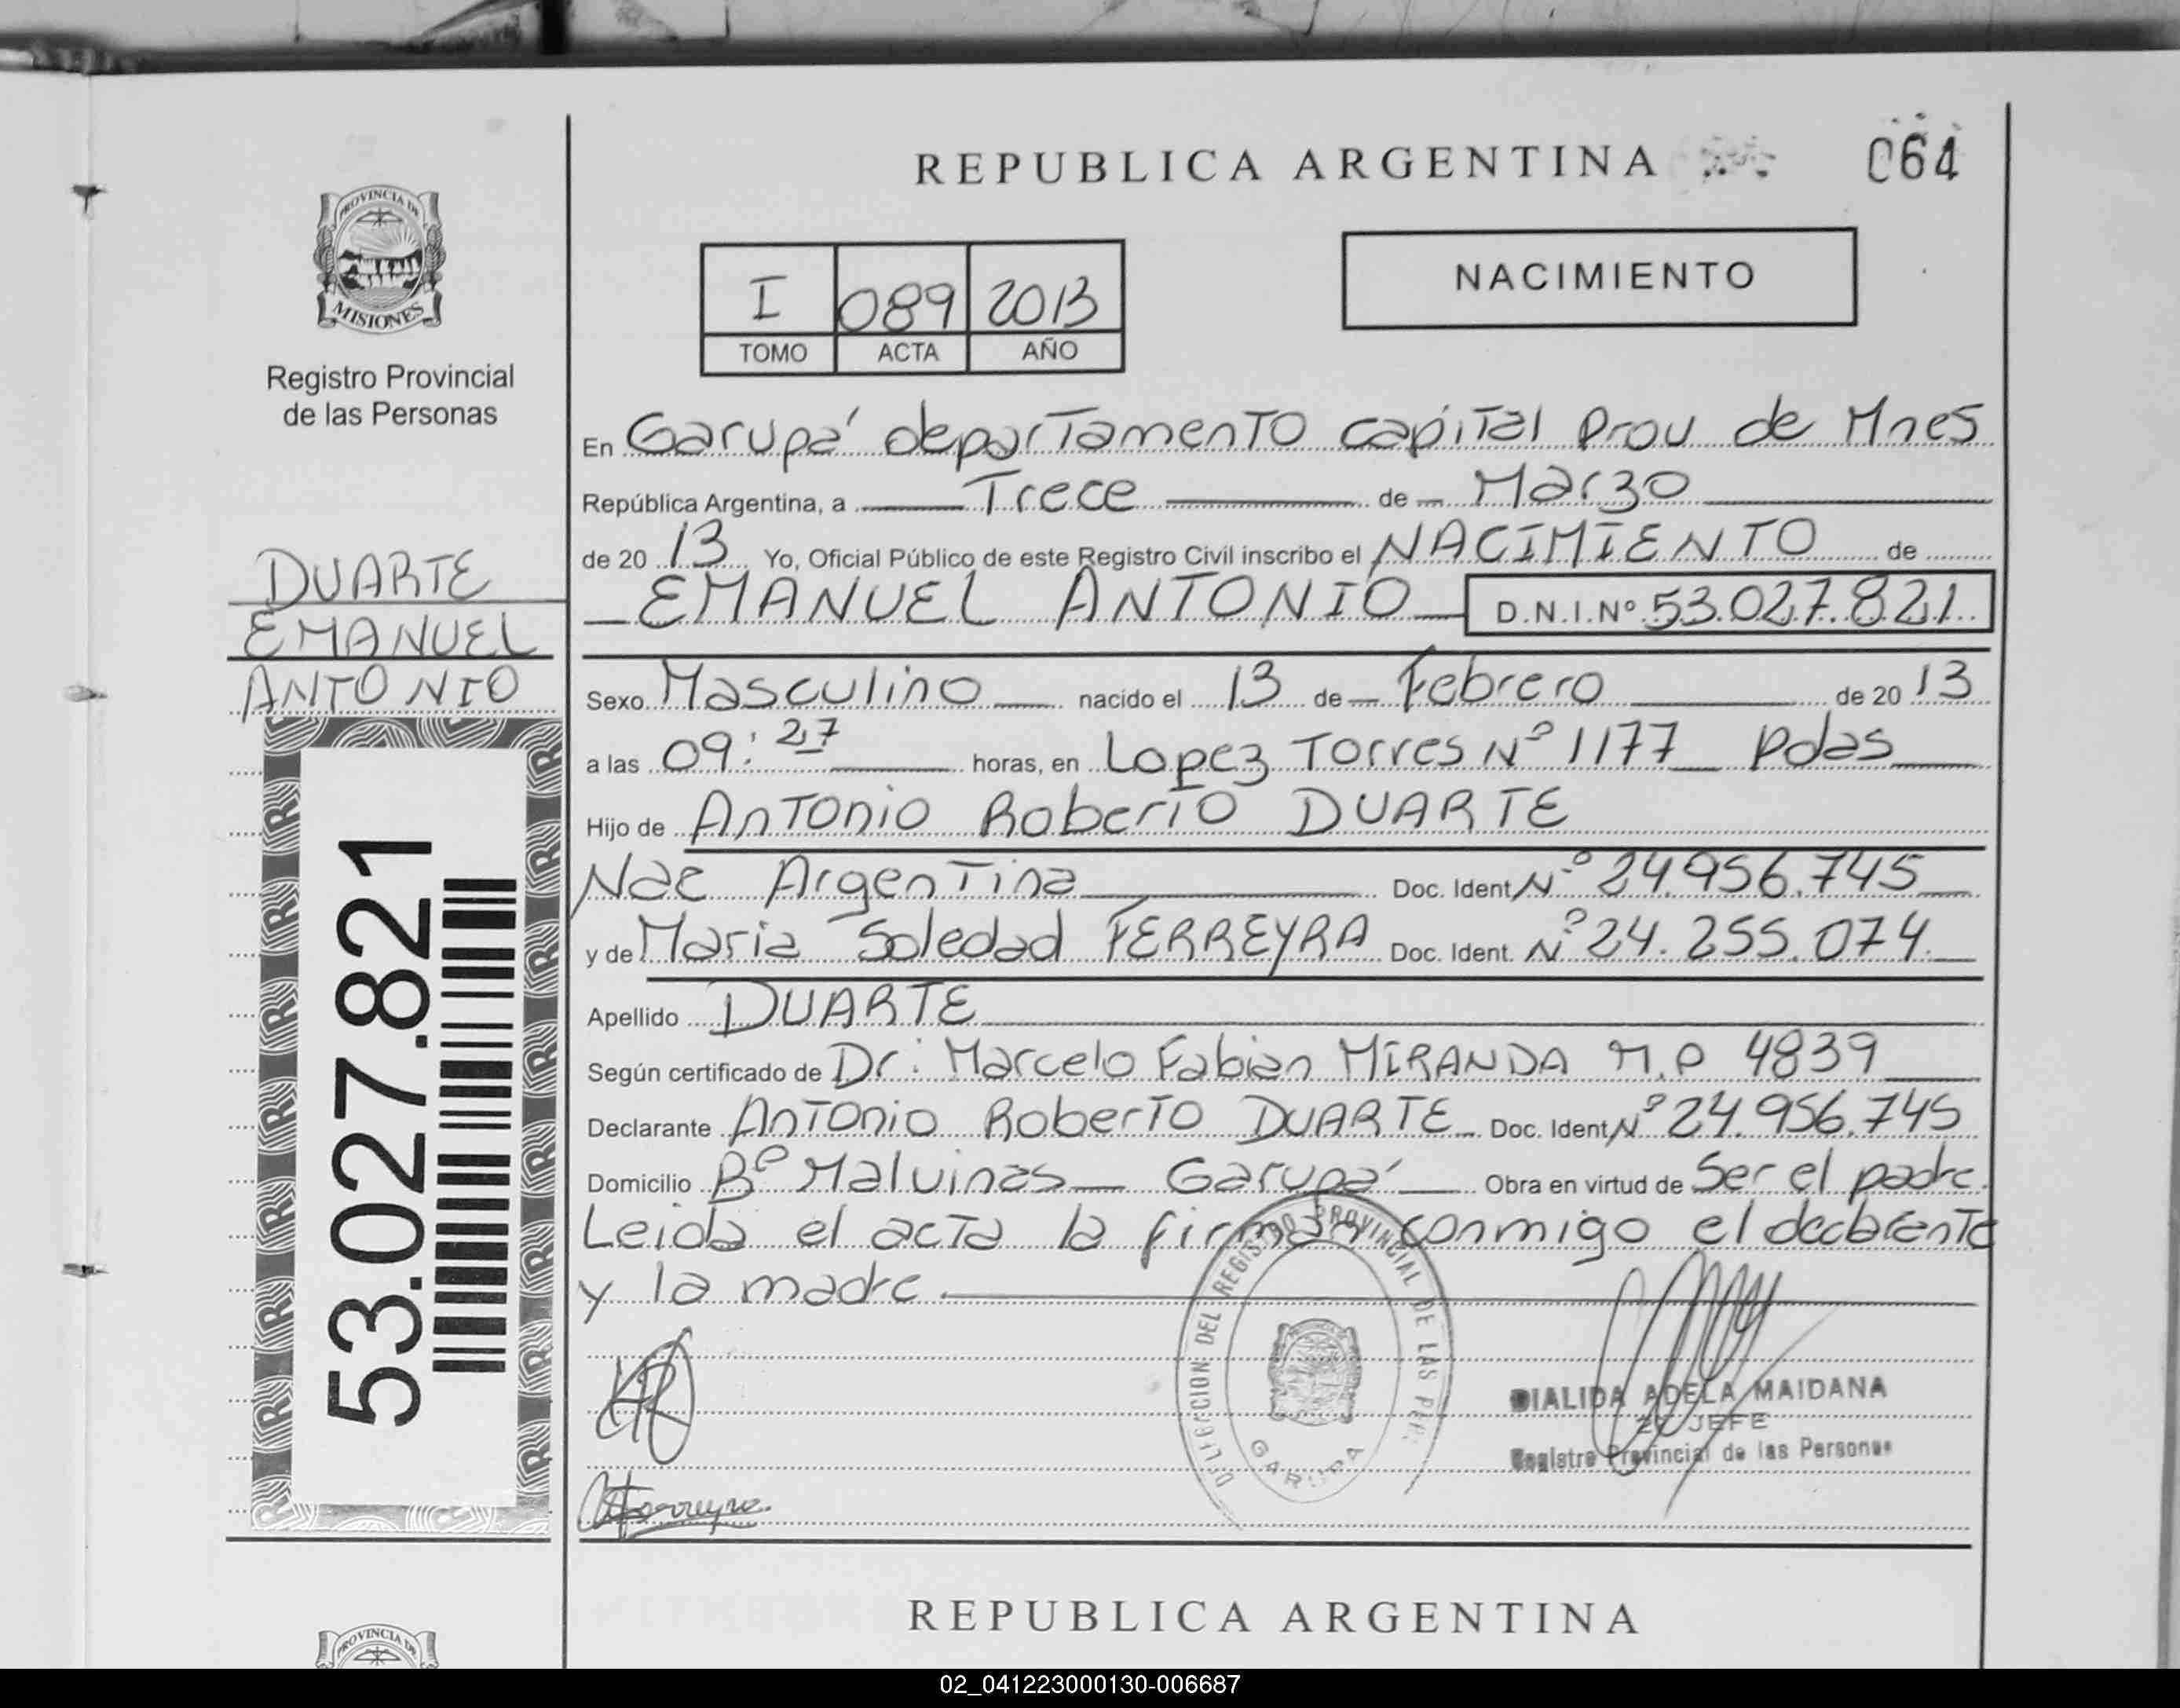 REPUBLICA ARGENTINA
064
PROVINCIA DE
MISIONES
Registro Provincial
de las Personas
NACIMIENTO
I 089 2013
TOMO ACTA AÑO
En Garupá departamento capital Prov de Mnes
República Argentina, a Trece de Marzo
de 20 13 Yo, Oficial Público de este Registro Civil inscribo el NACIMIENTO de
EMANUEL ANTONIO D.N.I.Nº 53.027.821
DUARTE
EMANUEL
ANTONIO
53.027.821
Sexo Masculino nacido el 13 de Febrero de 20 13
a las 09:27 horas, en Lopez Torres Nº 1177 Pdas
Hijo de Antonio Roberto DUARTE
Nac Argentina Doc. Ident Nº 24.956.745
y de Maria Soledad FERREYRA Doc. Ident. Nº 24.255.074
Apellido DUARTE
Según certificado de Dr: Marcelo Fabian MIRANDA M.P 4839
Declarante Antonio Roberto DUARTE Doc. Ident Nº 24.956.745
Domicilio Bº Malvinas Garupá Obra en virtud de Ser el padre.
Leida el acta la firman conmigo el declarante
y la madre.
DELEGACION DEL REGISTRO PROVINCIAL DE LAS PER.
GARUPA
DIALIDA ADELA MAIDANA
JEFE
Registro Provincial de las Personas
REPUBLICA ARGENTINA
PROVINCIA DE
02_041223000130-006687